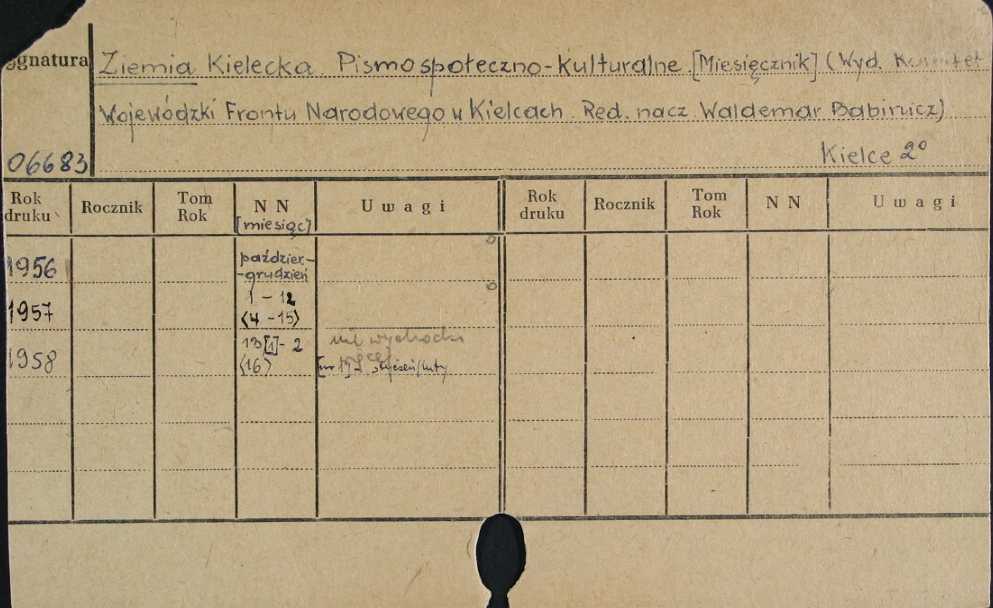 Sygnatura
Ziemia Kielecka. Pismo społeczno-kulturalne [Miesięcznik] (Wyd. Komitet
Wojewódzki Frontu Narodowego w Kielcach. Red. nacz. Waldemar Babinicz)
06683
Kielce 2°
Rok druku Rocznik Tom Rok N N [miesiąc] U w a g i Rok druku Rocznik Tom Rok N N U w a g i
1956 paździer-
-grudzień
1957 1 - 12
(4 - 15)
1958 13[1]- 2 nie wychodzi
(16) styczeń/luty